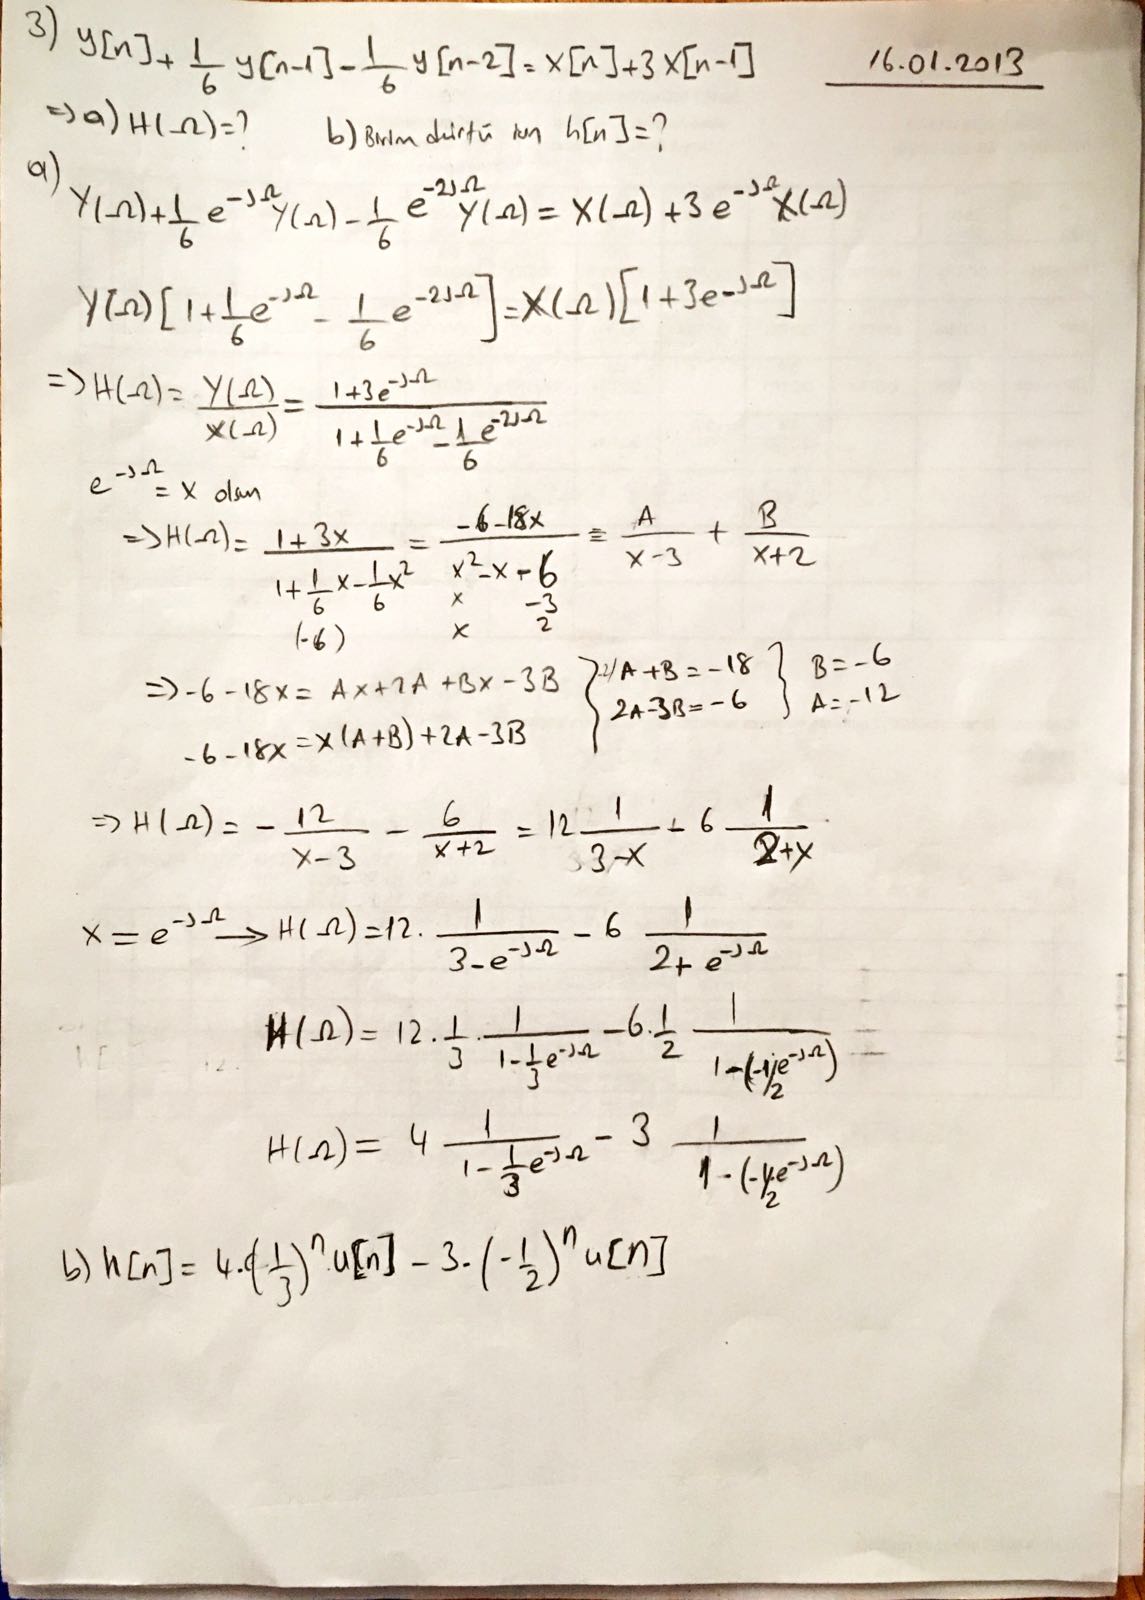 3) y[n] + 1/6 y[n-1] - 1/6 y[n-2] = x[n] + 3x[n-1]
16.01.2013
=> a) H(Ω)=? b) Birim dürtü için h[n]=?
a)
Y(Ω) + 1/6 e^-jΩ Y(Ω) - 1/6 e^-2jΩ Y(Ω) = X(Ω) + 3e^-jΩ X(Ω)
Y(Ω)[1 + 1/6 e^-jΩ - 1/6 e^-2jΩ] = X(Ω)[1 + 3e^-jΩ]
=> H(Ω) = Y(Ω)/X(Ω) = (1+3e^-jΩ)/(1 + 1/6 e^-jΩ - 1/6 e^-2jΩ)
e^-jΩ = x olsun
=> H(Ω) = (1+3x)/(1 + 1/6 x - 1/6 x²) = (-6-18x)/(x²-x-6) ≡ A/(x-3) + B/(x+2)
x -3
(-6) x 2
=> -6-18x = Ax+2A+Bx-3B } -2/ A+B = -18 } B=-6
-6-18x = x(A+B)+2A-3B 2A-3B=-6 A=-12
=> H(Ω) = - 12/(x-3) - 6/(x+2) = 12 1/(3-x) - 6 1/(2+x)
x = e^-jΩ → H(Ω) = 12. 1/(3-e^-jΩ) - 6 1/(2+e^-jΩ)
H(Ω) = 12. 1/3 . 1/(1 - 1/3 e^-jΩ) - 6. 1/2 1/(1-(-1/2 e^-jΩ))
H(Ω) = 4 1/(1 - 1/3 e^-jΩ) - 3 1/(1-(-1/2 e^-jΩ))
b) h[n] = 4.(1/3)^n.u[n] - 3.(-1/2)^n u[n]